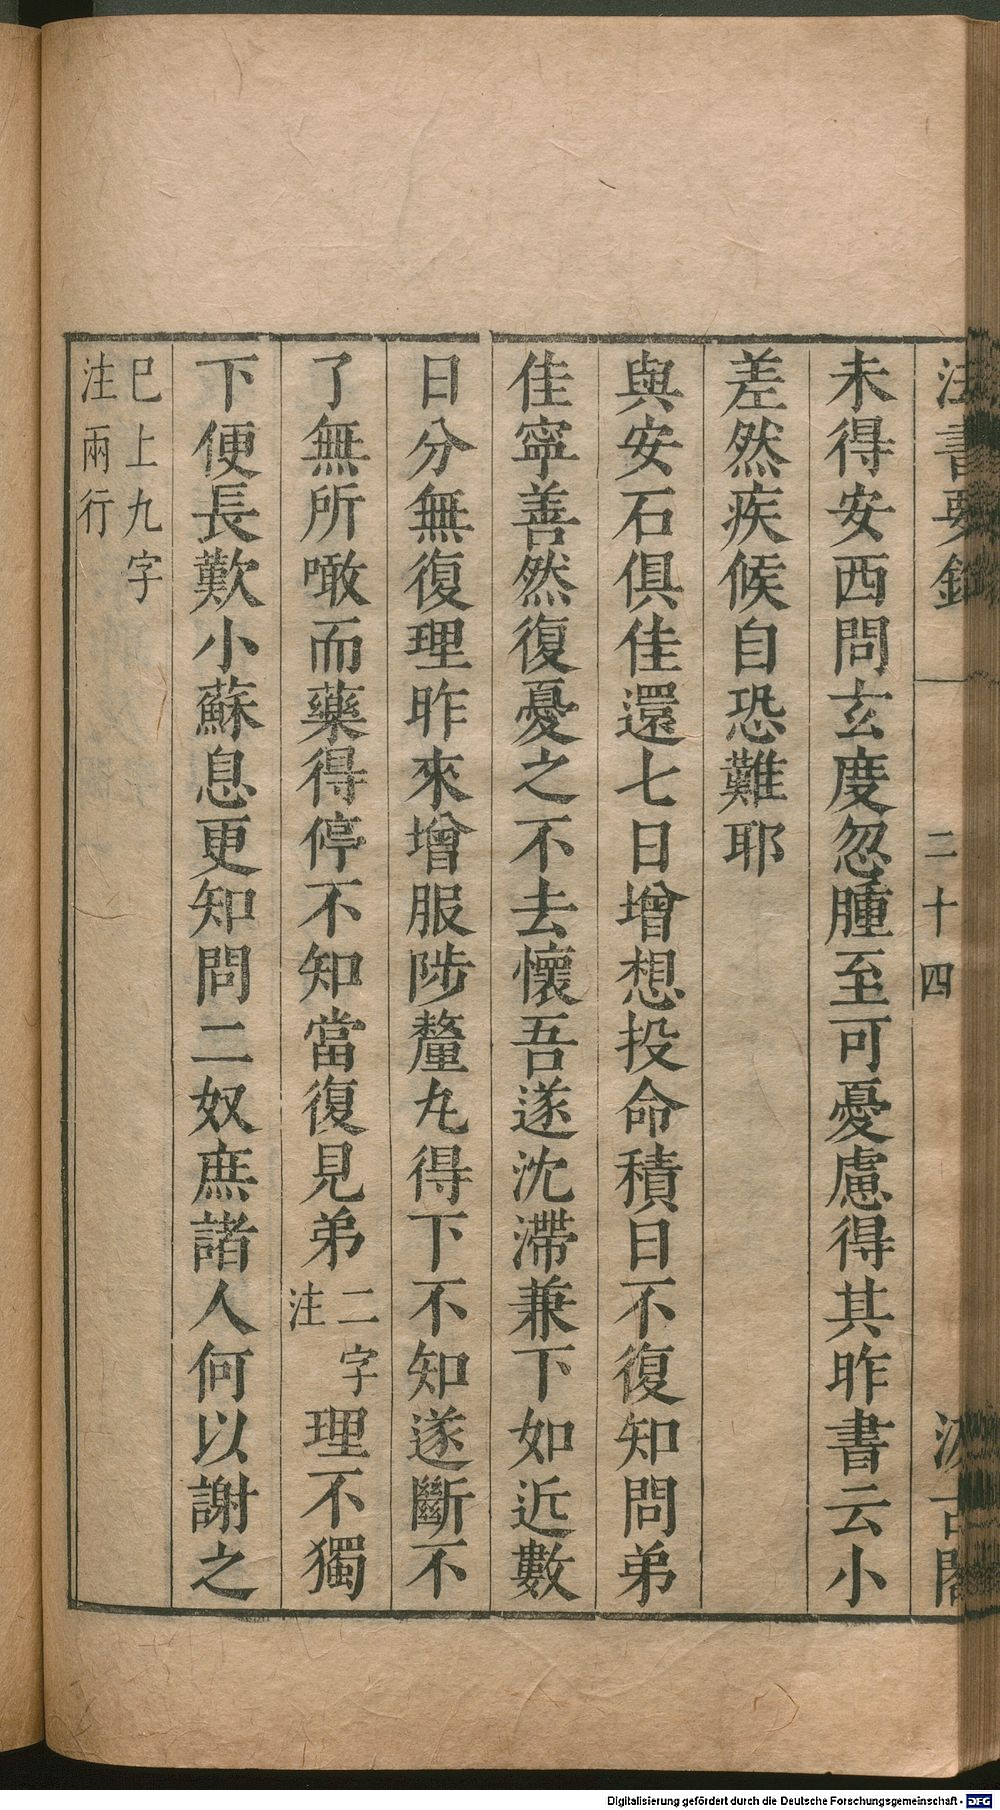 法書要錄
二十四
汲古閣
未得安西問玄度忽腫至可憂慮得其昨書云小
差然疾候自恐難耶
與安石俱佳還七日增想投命積日不復知問弟
佳寧善然復憂之不去懷吾遂沈滯兼下如近數
日分無復理昨來增服陟釐丸得下不知遂斷不
了無所噉而藥得停不知當復見弟二字注理不獨
下便長歎小蘇息更知問二奴庶諸人何以謝之
巳上九字
注兩行
Digitalisierung gefördert durch die Deutsche Forschungsgemeinschaft - DFG